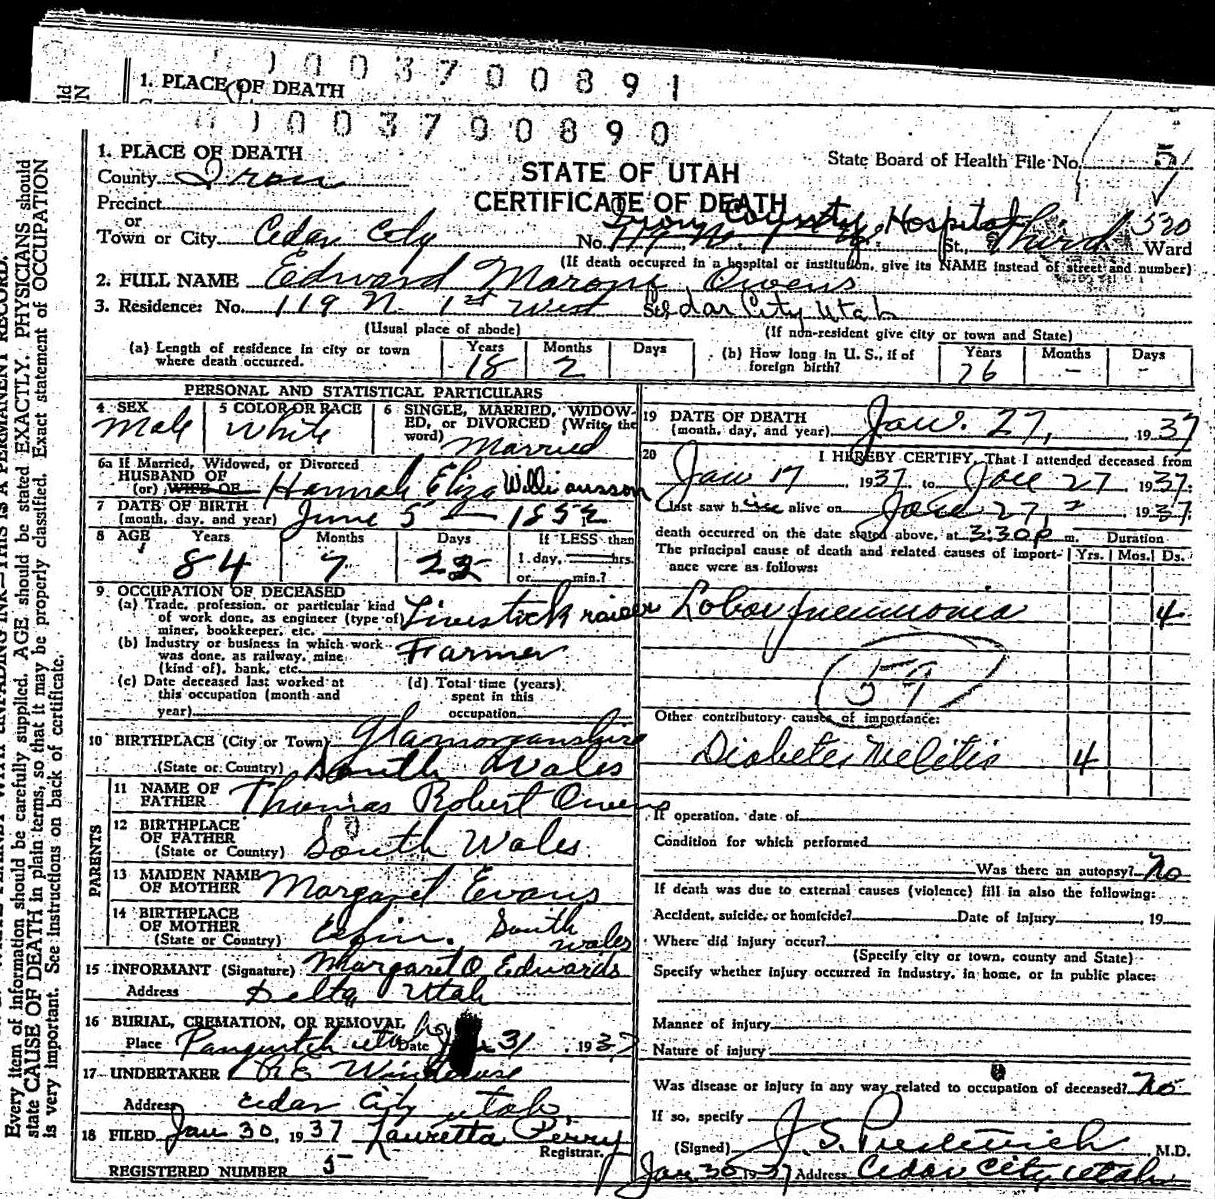 0 0 0 3 7 0 0 8 9 1
1. PLACE OF DEATH
0 0 0 3 7 0 0 8 9 0
1. PLACE OF DEATH
County Iron
STATE OF UTAH
CERTIFICATE OF DEATH
State Board of Health File No. 5
Precinct
or
Town or City Cedar City
Iron County Hospital
No. St. Third Ward
530
(If death occurred in a hospital or institution, give its NAME instead of street and number)
2. FULL NAME Edward Maroni Owens
3. Residence: No. 119 N. 1st West Cedar City Utah
(Usual place of abode) (If non-resident give city or town and State)
(a) Length of residence in city or town where death occurred. Years 18 Months 2 Days
(b) How long in U. S., if of foreign birth? Years 76 Months - Days -
PERSONAL AND STATISTICAL PARTICULARS
4. SEX Male
5 COLOR OR RACE White
6 SINGLE, MARRIED, WIDOWED, OR DIVORCED (Write the word) Married
6a If Married, Widowed, or Divorced
HUSBAND OF
(or) WIFE OF Hannah Eliza Williamson
7 DATE OF BIRTH
(month, day, and year) June 5 1852
8 AGE Years 84 Months 7 Days 22 If LESS than 1 day, hrs. or min.?
9 OCCUPATION OF DECEASED
(a) Trade, profession, or particular kind of work done, as engineer (type of) miner, bookkeeper, etc. Livestock raiser
(b) Industry or business in which work was done, as railway, mine (kind of), bank, etc. Farmer
(c) Date deceased last worked at this occupation (month and year)
(d) Total time (years) spent in this occupation
10 BIRTHPLACE (City or Town) Glamorganshire
(State or Country) South Wales
PARENTS
11 NAME OF FATHER Thomas Robert Owens
12 BIRTHPLACE OF FATHER
(State or Country) South Wales
13 MAIDEN NAME OF MOTHER Margaret Evans
14 BIRTHPLACE OF MOTHER
(State or Country) South Wales
15 INFORMANT (Signature) Margaret O Edwards
Address Delta Utah
16 BURIAL, CREMATION, OR REMOVAL
Place Panguitch Utah Date 31 1937
17 UNDERTAKER
Address Cedar City Utah
18 FILED Jan 30, 1937 Lauretta Perry
Registrar.
REGISTERED NUMBER 5
19 DATE OF DEATH
(month, day, and year) Jan. 27, 1937
20 I HEREBY CERTIFY, That I attended deceased from
Jan 17 1937, to Jan 27 1937.
I last saw him alive on Jan 27, 1937
death occurred on the date stated above, at 3:30 p m. Duration
The principal cause of death and related causes of importance were as follows: Yrs. Mos. Ds.
Lobar pneumonia 4
59
Other contributory causes of importance:
Diabetes Melitis 4
If operation, date of
Condition for which performed
Was there an autopsy? No
If death was due to external causes (violence) fill in also the following:
Accident, suicide, or homicide? Date of injury , 19
Where did injury occur?
(Specify city or town, county and State)
Specify whether injury occurred in industry, in home, or in public place:
Manner of injury
Nature of injury
Was disease or injury in any way related to occupation of deceased? No
If so, specify
(Signed) M.D.
Jan 30 1937 Address Cedar City Utah
Every item of information should be carefully supplied. AGE should be stated EXACTLY. PHYSICIANS should
state CAUSE OF DEATH in plain terms, so that it may be properly classified. Exact statement of OCCUPATION
is very important. See instructions on back of certificate.